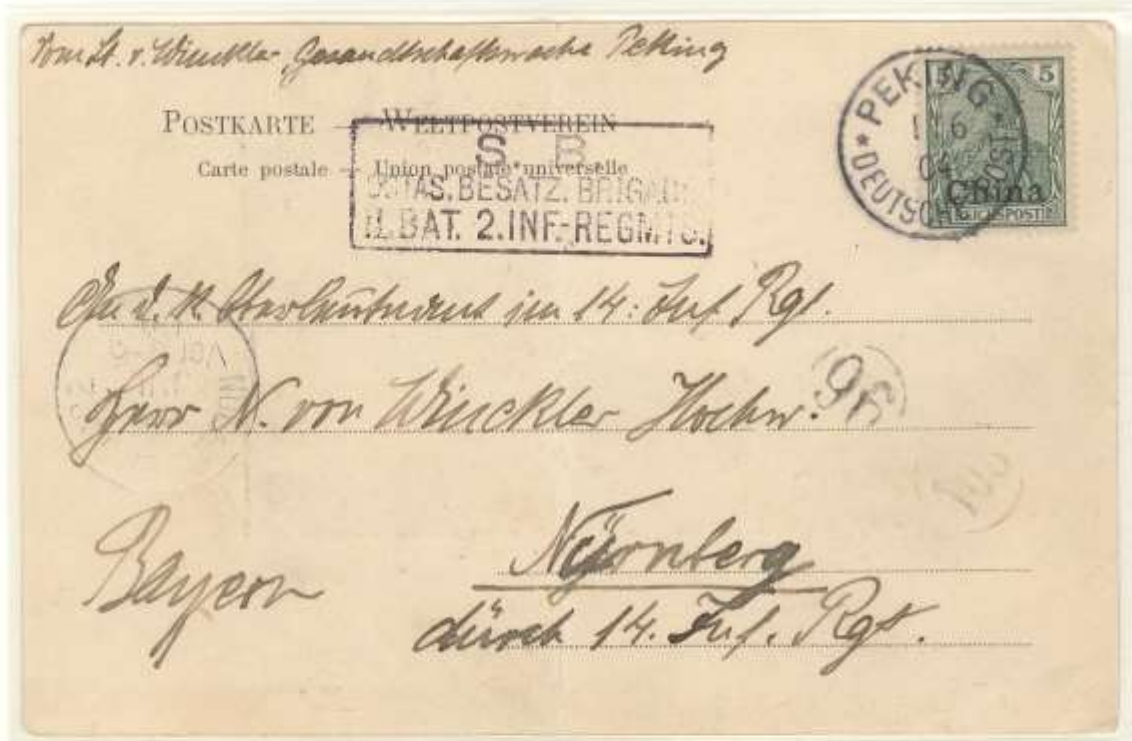 Vom Lt. v. Winckler, Gesandtschaftswache Peking
POSTKARTE — WELTPOSTVEREIN
Carte postale — Union postale universelle
S. B.
OSTAS. BESATZ. BRIGADE
II. BAT. 2. INF.-REGMTS.
PEKING
6
04
* DEUTSCHE POST *
5
China
REICHSPOST
An d. K. Oberleutnant im 14. Inf. Rgt.
Herr N. von Winckler Hochw.
96
Nürnberg
Bayern
durch 14. Inf. Rgt.